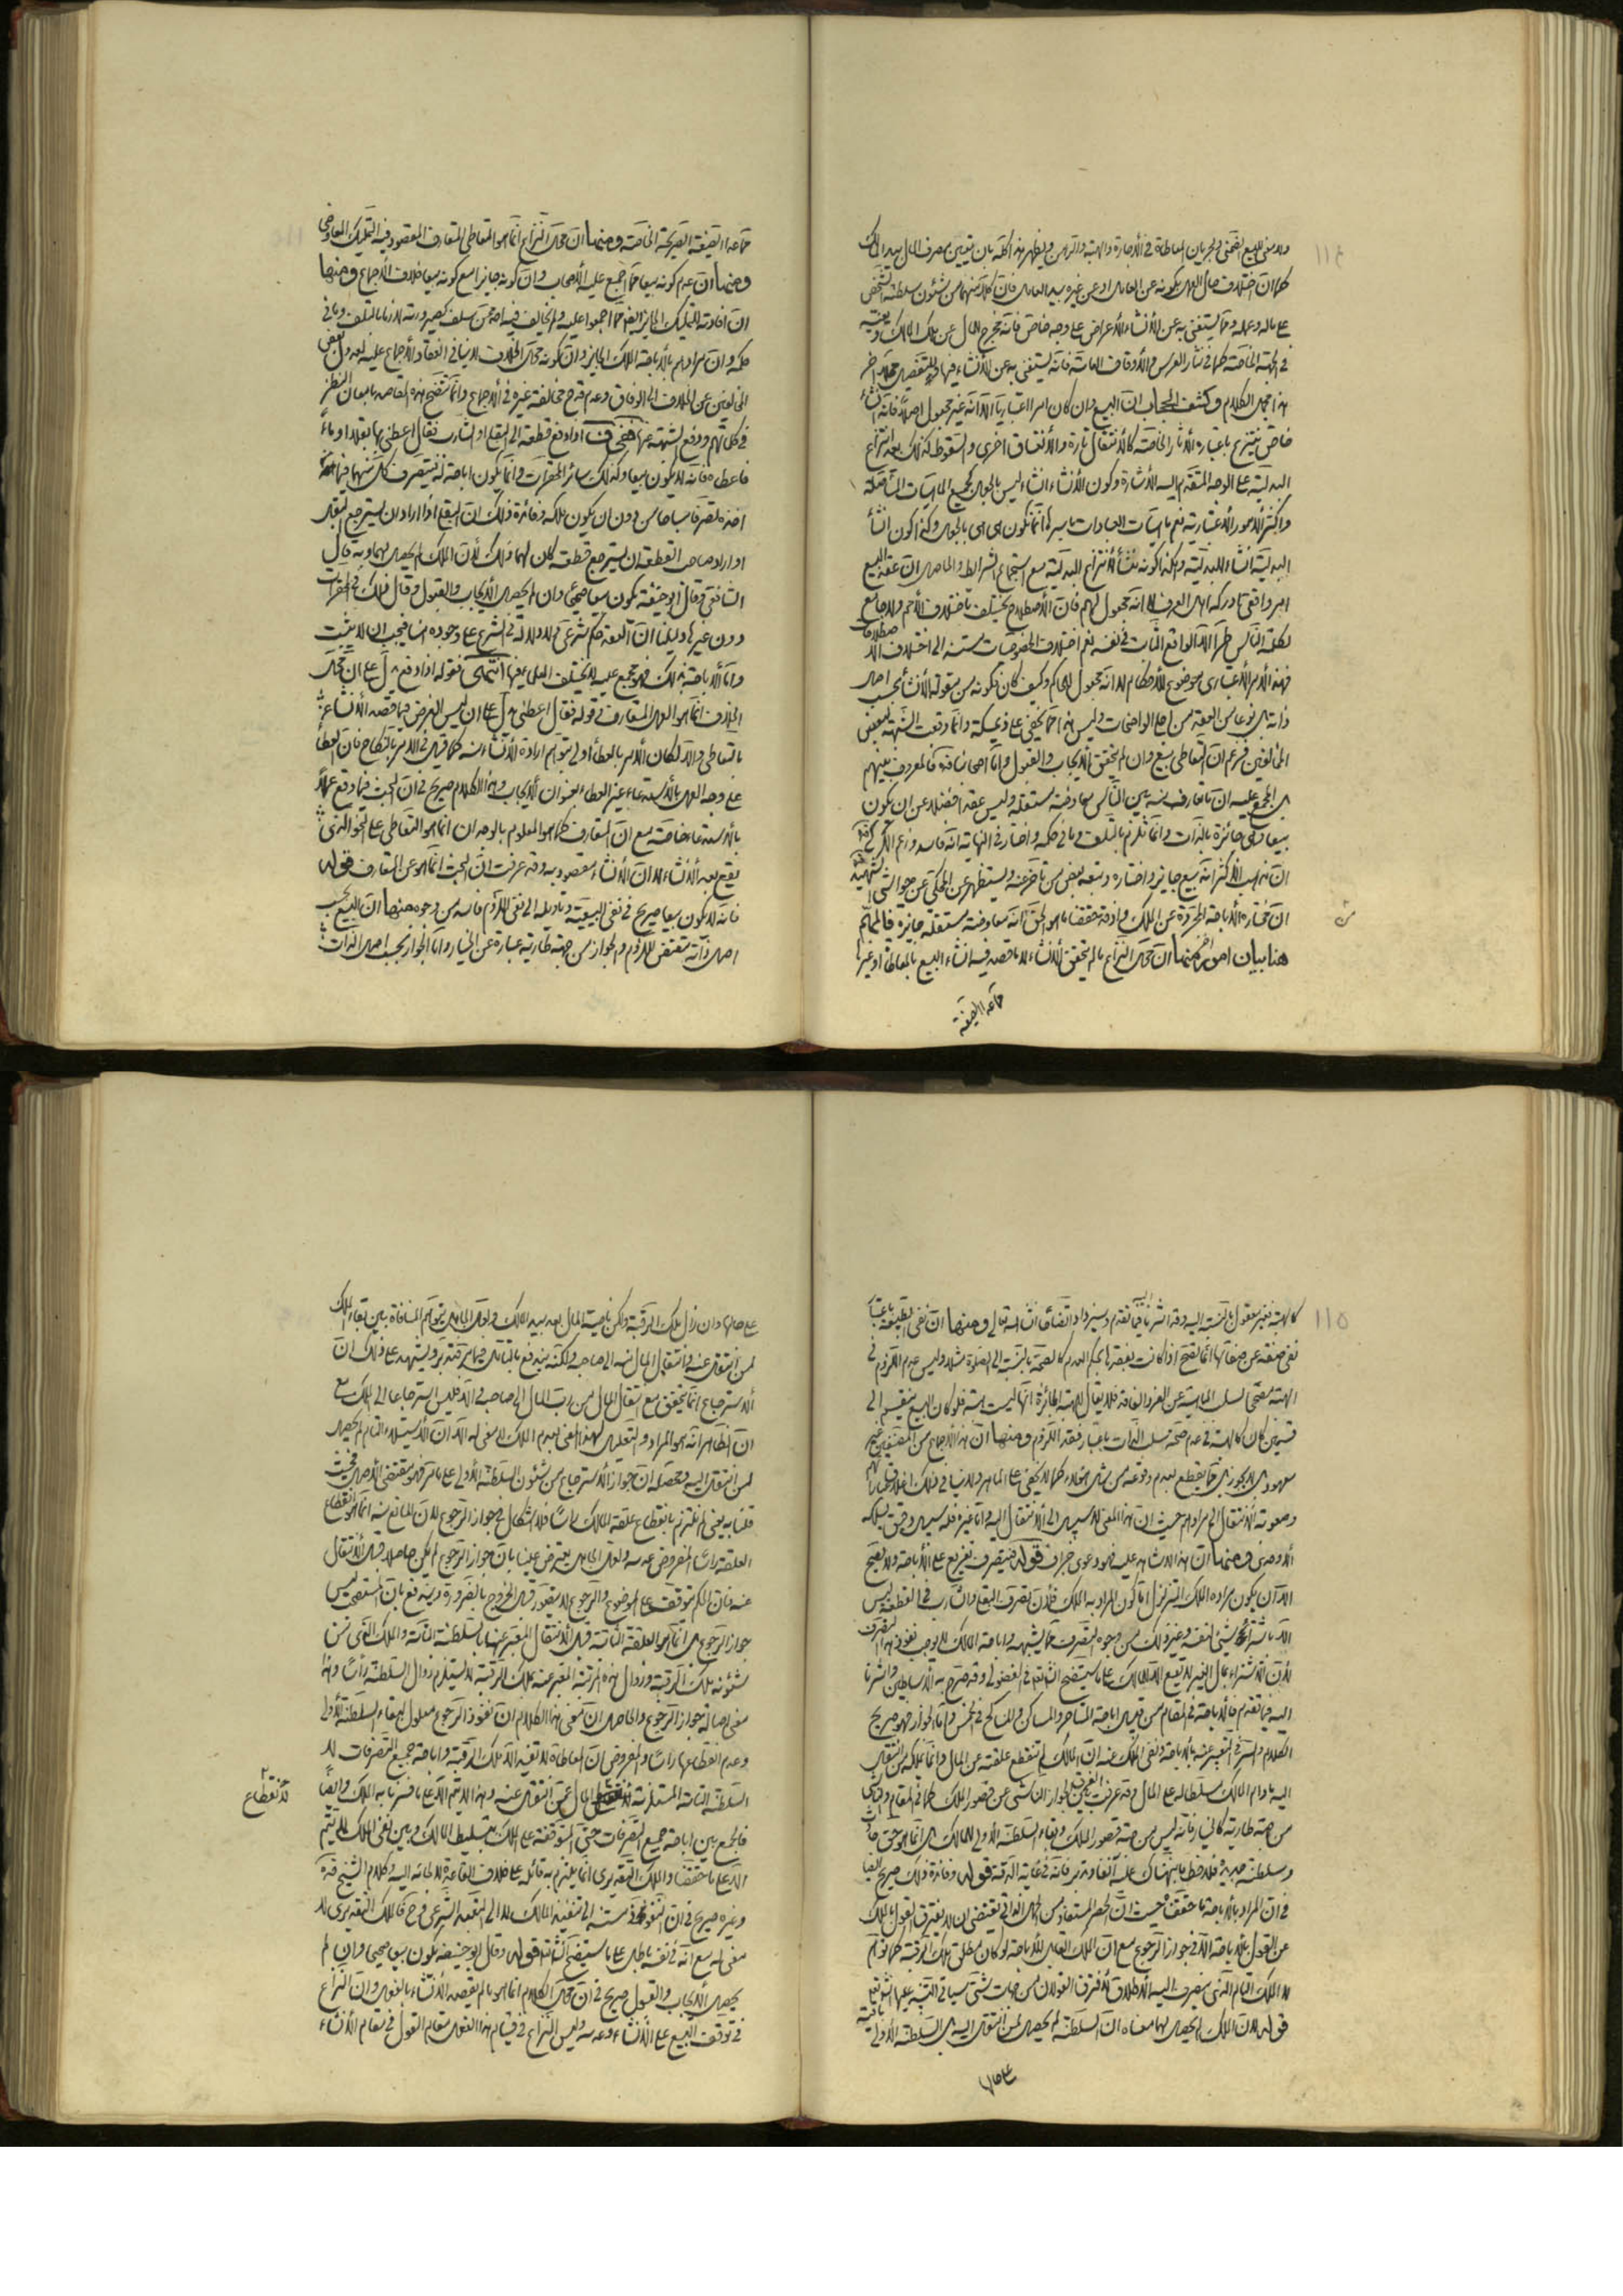 ١١٤
ولا معنى للبيع الضمني ولجريان المعاطاة في الأجارة والهبة والرهن ويظهر هذا كله بان يتعين صرف المال بيد المالك
كما ان اختلاف حال الفعل بكونه عن العامل او عن غيره بيد العامل فان كلا منهما من شئون سلطنة الشخص
على ماله وعمله وقد يستغنى به عن الأنشاء والأعراض على وجه خاص فانه يخرج المال عن ملك المالك
في الجهة الخاصة كما في نثار العرس والأوقاف العامة فانه يستغنى به عن الأنشاء فيها وللتفصيل محل آخر
هذا مجمل الكلام وكشف الحجاب ان البيع وان كان امرا اعتباريا الا انه غير مجعول اصلا فانه انشاء
خاص ينتزع باعتباره الآثار الخاصة كالأنتقال تارة والأنعتاق اخرى والسقوط كذلك بعد انتزاع
البدلية على الوجه المتقدم اليه الأشارة وكون الأنشاء انشاء ليس بالجعل كجميع الماهيات المتأصلة
واكثر الأمور الأعتبارية نعم ماهيات العبادات باسرها انما تكون هي هي بالجعل وكذا كون انشاء
البدلية انشاء للبدلية وهكذا كونه منشأ لأنتزاع البدلية مع استجماع الشرائط والحاصل ان عقد البيع
امر واقعي تداركه اهل العرف لا انه مجعول لهم فان الأصطلاح يختلف باختلاف الأمم ولا جامع
لكلمة الناس طرا الا الواقع الثابت في نفسه نعم اختلاف الخصوصيات مستند الى اختلاف الأصطلاحات
فهذا الأمر الأعتباري موضوع للأحكام لا انه مجعول للحاكم وكيف كان فكونه من مقولة الأنشاء بحسب اصل
ذاته بل نوعا من العقد من اجلى الواضحات وليس هذا مما يخفى على ذي مسكة وانما وقعت الشبهة لبعض
المخالفين فزعم ان التعاطي بيع وان لم يتحقق الأيجاب والقبول واما اصحابنا قده فالمعروف بينهم
بل المجمع عليه ان ما تعارف منه بين الناس معاوضة مستقلة وليس عقدا فضلا عن ان يكون
بيعا وهي جائزة بالذات وانما تلزم بالتلف وما في حكمه واختار في النهاية انه فاسد وزعم الكركي قده
ان مذهب الأكثر انه بيع جايز واختاره وتبعه بعض من تأخر عنه ويستظهر من المحكي عن حواشي الشهيد
ان مختاره الأباحة المجردة عن الملك وقد حققنا ما هو الحق من انه معاوضة مستقلة جايزة فالمهم
هنا بيان امور منها ان محل النزاع ما لم يتحقق الأنشاء لا ما قصد فيه انشاء البيع بالمعاطاة او غيرها
مما عدا الصيغة
مما عدا الصيغة الصريحة الخاصة ومنها ان محل النزاع انما هو التعاطي المتعارف المقصود فيه التمليك المعاوضي
ومنها ان عدم كونه بيعا مما اجمع عليه الأصحاب وان كونه جايزا مع كونه بيعا خلاف الأجماع ومنها
ان افادته التمليك الجايز ايضا مما اجمعوا عليه ولم يخالف فيه احد ممن سلف كصيرورته لازما بالتلف وما في
حكمه وان مرادهم بالأباحة الملك الجايز وان كونه محل الخلاف لا ينافي انعقاد الأجماع عليه لعدول بعض
المخالفين عن الخلاف الى الوفاق وعدم قدح مخالفة غيره في الأجماع وانما تتضح هذه المقاصد بامعان النظر
في كلماتهم ودفع الشبهة عنها ففي ف اذا دفع قطعة الى البقلي او الشارب فقال اعطني بها بقلا او ماء
فاعطاه فانه لا يكون بيعا وكذلك سائر المحقرات وانما يكون اباحة له فيتصرف كل منهما فيما
اخذه تصرفا مباحا من دون ان يكون ملكه وفائدة ذلك ان البقلي اذا اراد ان يسترجع البقل
او اراد صاحب القطعة ان يسترجع قطعته كان لهما ذلك لأن الملك لم يحصل لهما وبه قال
الشافعي وقال ابو حنيفة يكون بيعا صحيحا وان لم يحصل الأيجاب والقبول وقال ذلك في المحقرات
دون غيرها دليلنا ان العقد حكم شرعي ولا دلالة في الشرع على وجوده هنا فيجب ان لا يثبت
واما الأباحة بذلك فهو مجمع عليه لا يختلف العلماء فيها انتهى فقوله اذا دفع دل على ان محل
الخلاف انما هو الفعل المتعارف وقوله فقال اعطني دل على ان ليس الغرض فيما قصد الأنشاء
بالتعاطي والا لكان الأمر بالعطاء اولى بتوهم ارادة الأنشاء منه كما قيل في الأمر بالنكاح فان العطاء
على وجه العمل بالأستدعاء غير العطاء بعنوان الأيجاب وهذا الكلام صريح في ان البحث فيما وقع عملا
بالأستدعاء خاصة مع ان المتعارف كما هو المعلوم بالوجدان انما هو التعاطي على النحو الذي
يقع بعد الأنشاء لا ان الأنشاء مقصود به وقد عرفت ان البحث انما هو عن المتعارف قوله
فانه لا يكون بيعا صريح في نفى البيعية وتأويله الى نفى اللزوم فاسد من وجوه منها ان البيع بحسب
اصل ذاته مقتض للزوم والجواز من جهة طارية عبارة عن الخيار واما الجواز بحسب اصل الذات
١١٥
كالهبة فغير معقول بالنسبة اليه وقد اشرنا اليه فيما تقدم وسيزداد اتضاحا انشاء الله تعالى ومنها ان نفى الطبيعة باعتبار
نفى صنف عن صنفاتها انما تصح اذا كانت بعضها بحكم العدم كالصحة بالنسبة الى الصلوة مثلا وليس عدم اللزوم في
الهبة مصححا لسلب الماهية عن الفرد الفاقد فلا يقال للهبة الجائزة انها ليست هبة فلو كان البيع منقسم الى
قسمين كان كالهبة في عدم صحة سلب الذات باعتبار فقد اللزوم ومنها ان هذا الأجماع من المصنفين غير
معهود بل لا يجوز بل مما يقطع بعدم وقوعه من مثل هؤلاء كما لا يخفى على الماهر ولا ينافي ذلك
وصعوبة الأنتقال الى مرادهم حيث ان هذا المعنى لا سبيل الى الأنتقال اليه واما غيره فله سبيل
ومنها ان هذا لا شاهد عليه فهو دعوى جزاف قوله فيتصرف تفريع على الأباحة ولا يصح
الا ان يكون مراده الملك المتزلزل اما كون المراد به الملك فلأن تصرف البقلي والشارب في القطعة ليس
الا باشتراء شيء لنفسه وغير ذلك من وجوه التصرف مما يشبهه واباحة المالك لا يوجب نفوذ هذا التصرف
لأن الأشتراء بمال الغير لا يقع الا للمالك على ما سيتضح انشاء الله تعالى في الفضولي وقد صرح به الأساطين واشرنا
اليه فيما تقدم فالأباحة في المقام من قبيل اباحة المتاجر والمساكن والمناكح في الخمس واما الجواز فهو صريح
الكلام والسر في التعبير عنه بالأباحة ونفى الملك عنه ان المالك لم تنقطع علقته عن المال وانما يملكه من انتقل
اليه ما دام المالك مسلطا له على المال وقد عرفت الفرق بين الجواز الناشى عن قصور الملك كما في المقام والناشى
من جهة طارية كالخيار فانه ليس من جهة قصور الملك وبقاء السلطنة الأولى للمالك بل انما هو حق حادث
وسلطنة جديدة فلا تخلط ما بينهما كن على آنفا وتدبر فانه في غاية الدقة قوله وفائدة ذلك صريح ايضا
في ان المراد بالأباحة ما حققناه حيث ان الحصر المستفاد من الحمل الذاتي يقتضى ان لا يفترق القول بالملك
عن القول بالأباحة الا في جواز الرجوع مع ان الملك القابل للأباحة لو كان مطلق ملك الرقبة كما توهم
لا الملك التام الذي ينصرف اليه الأطلاق لأفترق القولان من جهات شتى سيأتي التنبيه عليها انشاء الله تعالى
قوله لأن الملك لم يحصل لهما معناه ان السلطنة لم يحصل لمن انتقل اليه بل السلطنة الأولى باقية
على حالها
على حالها وان زال ملك الرقبة ولكن ناصية المال بعد بيد المالك ولعل الجاهل يتوهم المنافاة بين بقاء الملك
لمن انتقل عنه وانتقال المال منه الى صاحبه ولكنه يندفع بالتأمل فيما مر فتدبر ويشهد على ذلك ان
الأسترجاع انما يتحقق مع انتقال المال من رب المال الى صاحبه والا فليس استرجاعا الى الملك مع
ان الظاهر انه هو المراد والتعليل لهذا المعنى بعدم الملك لا معنى له الا ان الأستيلاء التام لم يحصل
لمن انتقل اليه ومحصله ان جواز الأسترجاع من شئون السلطنة الأولى على ما مر فهو مقتضى الأصل فحيث
قلنا به يعنى لم نلتزم بانقطاع علقة المالك رأسا فلا اشكال في جواز الرجوع لأن المانع منه انما هو انقطاع
العلقة رأسا والمفروض عدمه ولعل الجاهل يعترض علينا بان جواز الرجوع لم يكن حاصلا قبل الأنتقال
عنه فان الحكم متوقف على الموضوع والرجوع لا يتصور قبل الخروج بالضرورة ويندفع بان المستصحب ليس
جواز الرجوع بل انما هو العلقة الثابتة قبل الأنتقال المعبر عنها بالسلطنة التامة والملك القوى فمن
شئونه ملك الرقبة وزوال هذه المرتبة المعبر عنه بملك الرقبة لا يستلزم زوال السلطنة رأسا وهذا
معنى اصالة جواز الرجوع والحاصل ان معنى هذا الكلام ان نفوذ الرجوع معلول لبقاء السلطنة الأولى
وعدم انقطاعها رأسا والمفروض ان المعاطاة لا تفيد الا ملك الرقبة واباحة جميع التصرفات لا
السلطنة التامة المستلزمة لأنقطاع المال عمن انتقل عنه وهذا لا يتم الا على ما فسرنا به الملك وايضا
لأنقطاع
فالجمع بين اباحة جميع التصرفات حتى المتوقفة على الملك بتسليط المالك وبين نفى الملك لا يتم
الا على ما حققنا والملك التقديري انما يلتزم به قائله على خلاف القاعدة لا لجائه اليه وكلام الشيخ قده
وغيره صريح في ان النفوذ مستند الى تنفيذ المالك لا الى التعبد الشرعي فرجع فالملك التقديري لا
معنى له مع انه في نفسه باطل على ما سيتضح انشاء الله قوله وقال ابو حنيفة يكون بيعا صحيحا وان لم
يحصل الأيجاب والقبول صريح في ان محل الكلام انما هو ما لم يقصد الأنشاء بالفعل وان النزاع
في توقف البيع على الأنشاء وعدمه وليس النزاع في قيام هذا الفعل مقام القول في مقام الأنشاء